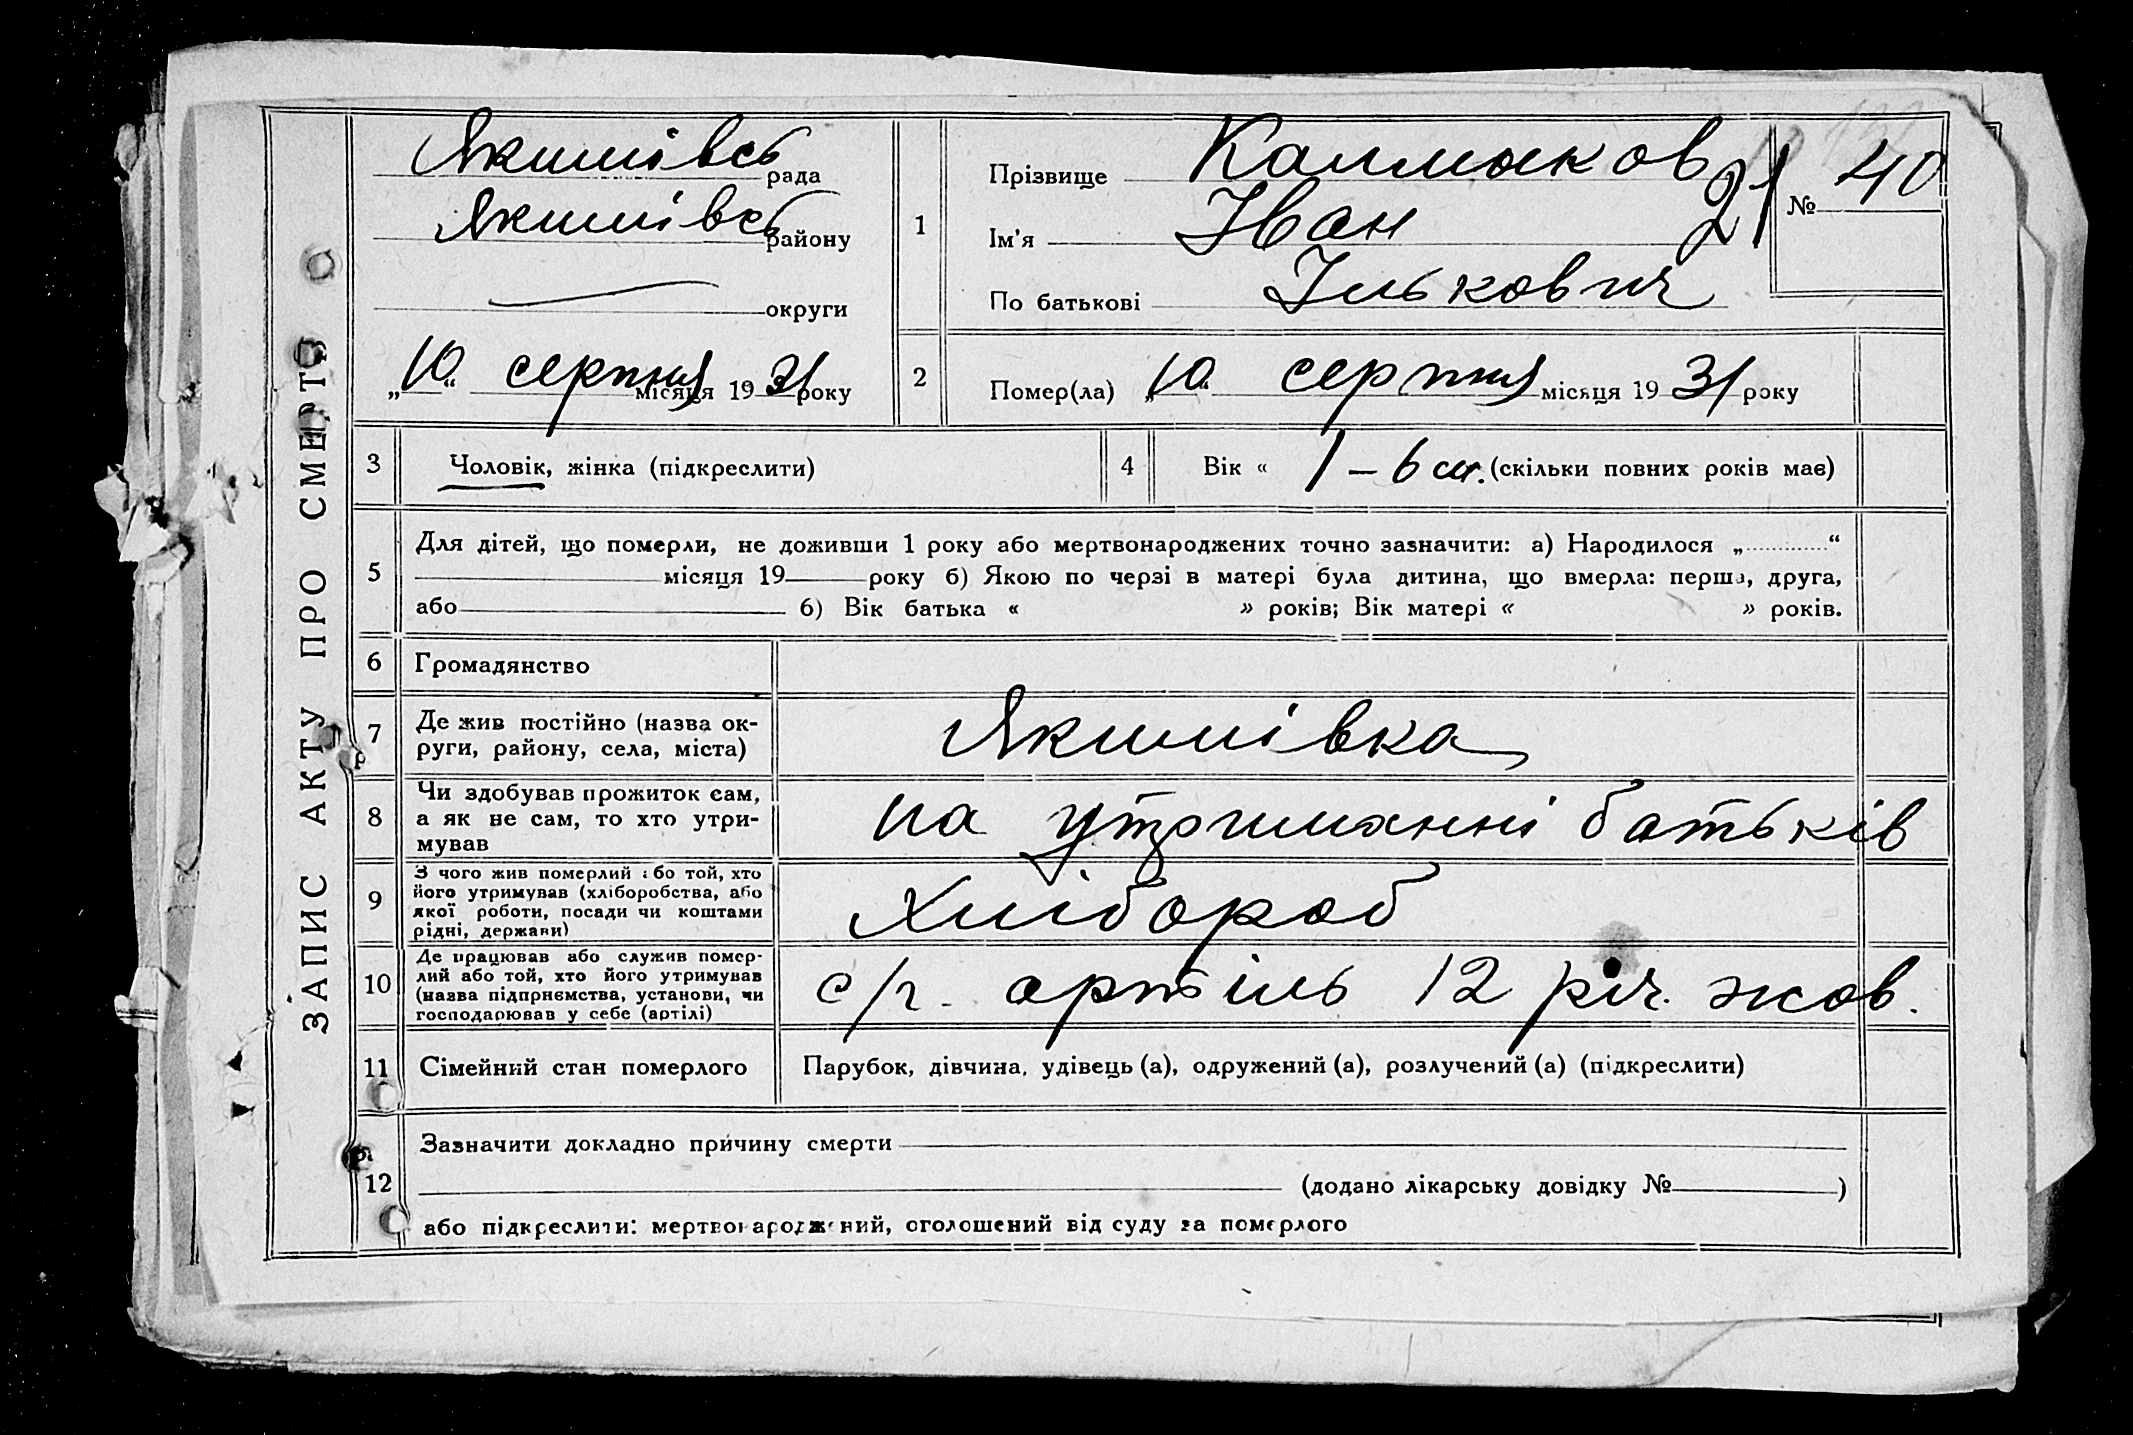 ЗАПИС АКТУ ПРО СМЕРТЬ
Якимівсь рада
Якимівсь району
округи
„10“ серпня місяця 1931 року
1
Прізвище Калмиков
Ім'я Іван 21
По батькові Ількович
№ 40
2 Помер(ла) „10“ серпня місяця 1931 року
3 Чоловік, жінка (підкреслити)
4 Вік « 1 – 6 м. (скільки повних років має)
5 Для дітей, що померли, не доживши 1 року або мертвонароджених точно зазначити: а) Народилося „ “
місяця 19 року б) Якою по черзі в матері була дитина, що вмерла: перша, друга,
або б) Вік батька « » років; Вік матері « » років.
6 Громадянство
7 Де жив постійно (назва ок-
руги, району, села, міста)
Якимівка
8 Чи здобував прожиток сам,
а як не сам, то хто утри-
мував
на утриманні батьків
9 З чого жив померлий або той, хто
його утримував (хліборобства, або
якої роботи, посади чи коштами
рідні, держави)
Хлібороб
10 Де працював або служив помер-
лий або той, хто його утримував
(назва підприємства, установи, чи
господарював у себе (артілі)
с/г. артіль 12 річ. жов.
11 Сімейний стан померлого
Парубок, дівчина, удівець (а), одружений (а), розлучений (а) (підкреслити)
12 Зазначити докладно причину смерти
(додано лікарську довідку № )
або підкреслити: мертвонароджений, оголошений від суду за померлого